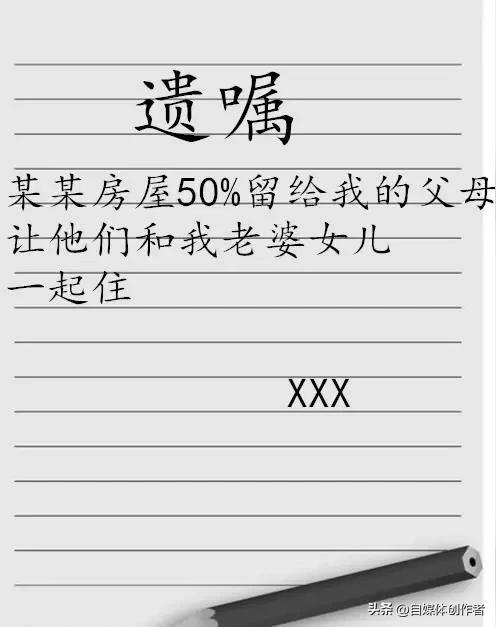 遗嘱
某某房屋50%留给我的父母
让他们和我老婆女儿
一起住
XXX
头条 @自媒体创作者